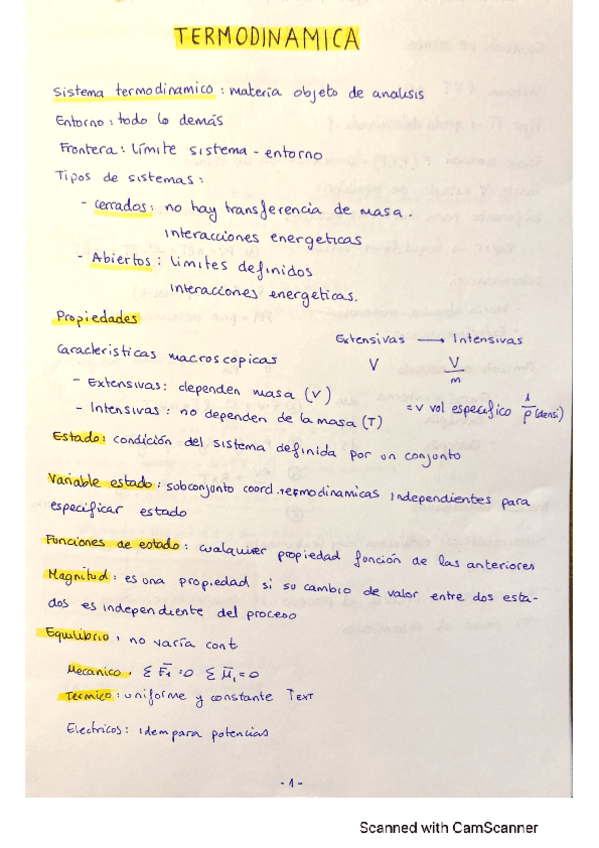 TERMODINAMICA
Sistema termodinamico : materia objeto de analisis
Entorno : todo lo demás
Frontera : límite sistema - entorno
Tipos de sistemas :
- Cerrados : no hay transferencia de masa.
Interacciones energeticas
- Abiertos : limites definidos
Interacciones energeticas.
Propiedades
Caracteristicas macroscopicas
- Extensivas : dependen masa (V)
- Intensivas : no dependen de la masa (T)
Extensivas → Intensivas
V V/m
= v vol especifico 1/ρ (densi)
Estado : condición del sistema definida por un conjunto
Variable estado : subconjunto coord. termodinamicas independientes para
especificar estado
Funciones de estado : cualquier propiedad función de las anteriores
Magnitud : es una propiedad si su cambio de valor entre dos esta-
dos es independiente del proceso
Equilibrio , no varía cont
Mecanico , Σ F̅₁ = 0 Σ M̅₁ = 0
Termico : uniforme y constante TEXT
Electricos : idem para potencias
- 1 -
Scanned with CamScanner